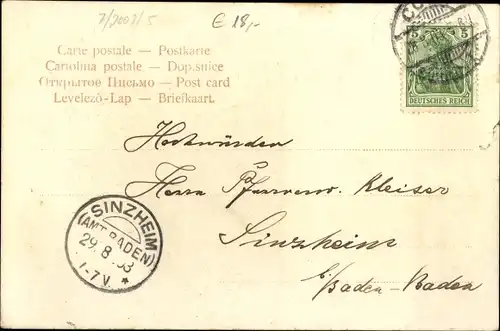 7/2003/5
€ 18,-
Carte postale — Postkarte
Cartolina postale. — Dopisnice
Открытое Письмо — Post card
Levelező-Lap — Briefkaart.
5
DEUTSCHES REICH
Hochwürden
Herrn Pfarrverw. Kleiser
Sinzheim
b/Baden-Baden
SINZHEIM
(AMT BADEN)
29.8.03
1-7V.